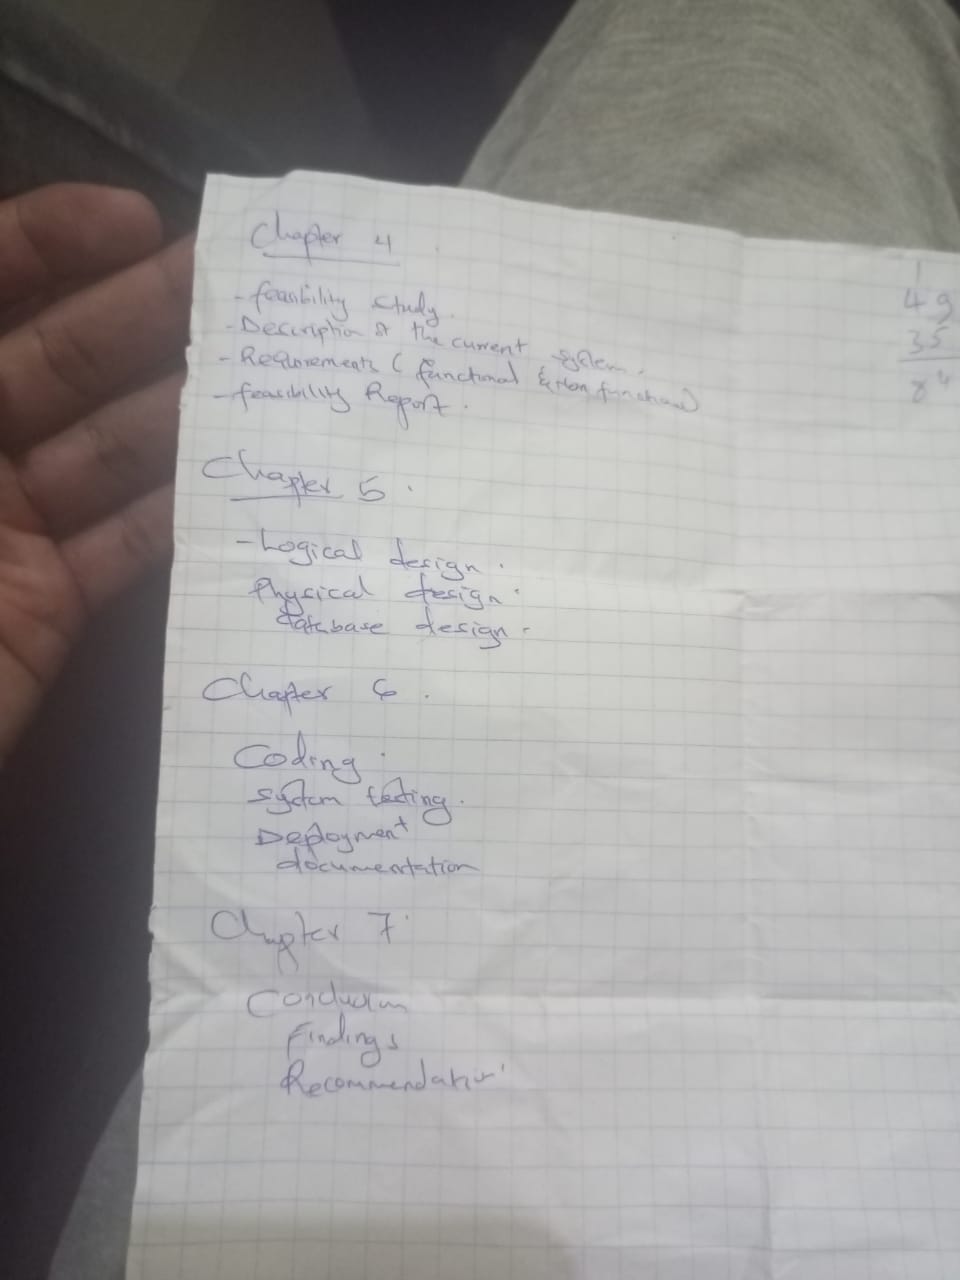 Chapter 4
- feasibility study.
- Description of the current system.
- Requirements ( functional & Non functional)
- feasibility Report.
1
49
35
84
Chapter 5.
- Logical design.
Physical design.
database design.
Chapter 6.
Coding.
System testing.
Deployment
documentation
Chapter 7.
Conclusion
Findings
Recommendation